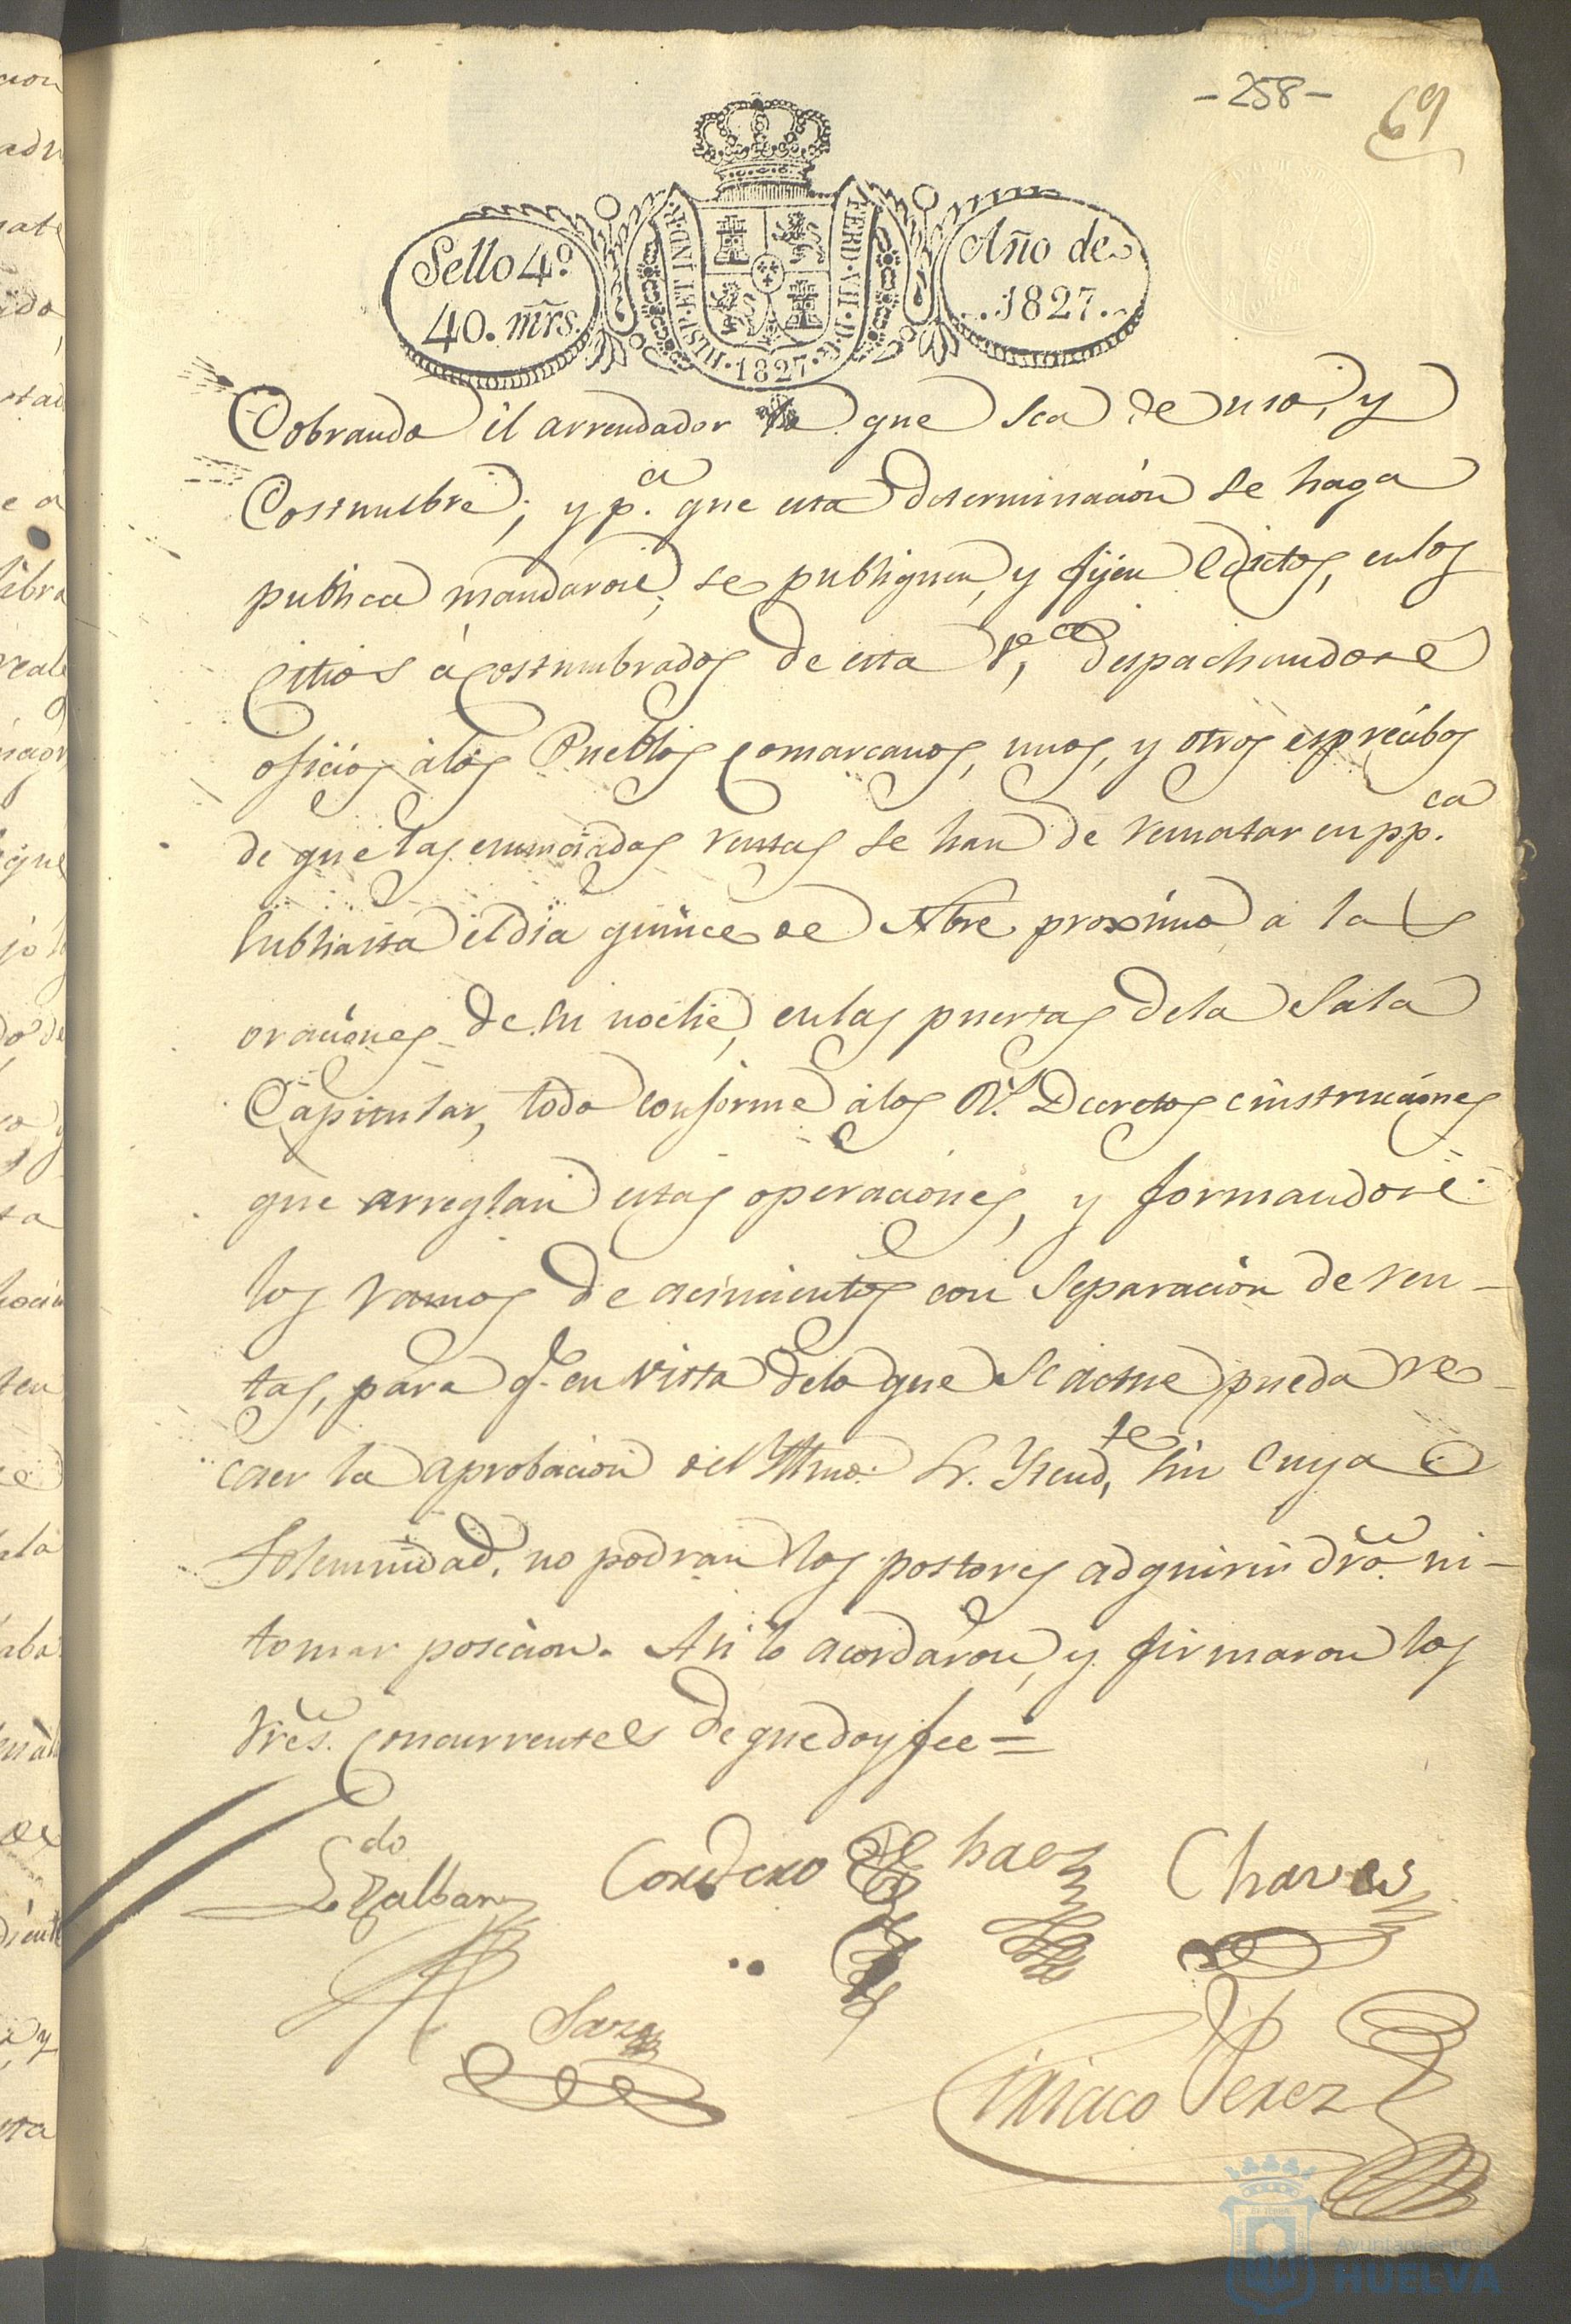 -258-
69
Sello 4.º
40. mrs.
HISP. ET IND. R.
FERD. VII. D. G.
1827
Año de
1827.
Cobrando el arrendador lo que sea de uso, y
Costumbre; y p.ª que esta determinacion se haga
publica mandaron; se publiquen, y fijen Edictos, en los
citios acostumbrados de esta V.ª despachandose
oficios á los Pueblos comarcanos, unos, y otros
de que las enunciadas rentas se han de rematar en pp.ca
subhasta el dia quince de Nbre proximo a las
oraciones de su noche, en las puertas de la Sala
Capitular, todo conforme á los R.s Decretos é instruciones
que arreglan estas operaciones, y formandose
los ramos de acimientos con separacion de ren-
tas, para q.e en vista de lo que se actue pueda re-
caer la aprobacion del Yltmo. Sr. Yntend.te sin cuya
Solemnidad, no podran los postores adquirir dro. ni-
tomar posecion. Asi lo acordaron, y firmaron los
Sres. Concurrentes de que doy fee=
Ldo
Cordero
Chaves
Ciriaco Perez
Ayuntamiento de
HUELVA